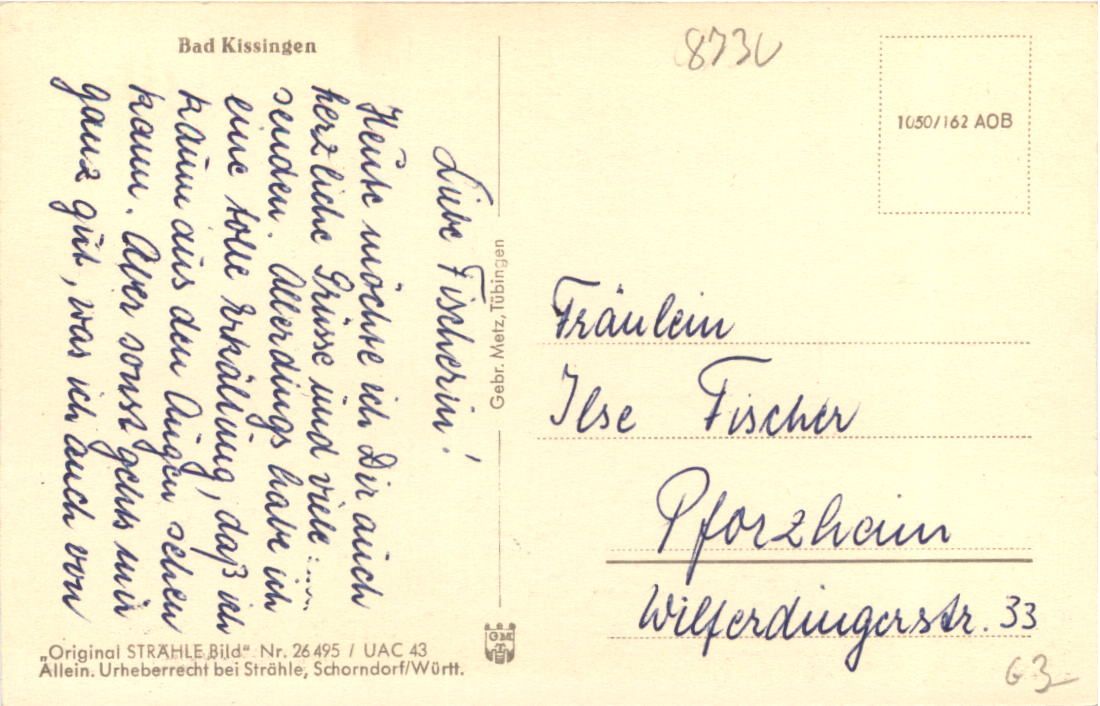 Bad Kissingen
8730
1050/162 AOB
Liebe Fischerin!
Heute möchte ich Dir auch
herzliche Grüsse und viele
senden. Allerdings habe ich
eine tolle Erkältung, daß ich
kaum aus den Augen sehen
kann. Aber sonst gehts mir
ganz gut, was ich auch von
Gebr. Metz, Tübingen
Fräulein
Ilse Fischer
Pforzheim
Wilferdingerstr. 33
GM
T
„Original STRÄHLE Bild" Nr. 26495 / UAC 43
Allein. Urheberrecht bei Strähle, Schorndorf/Württ.
63